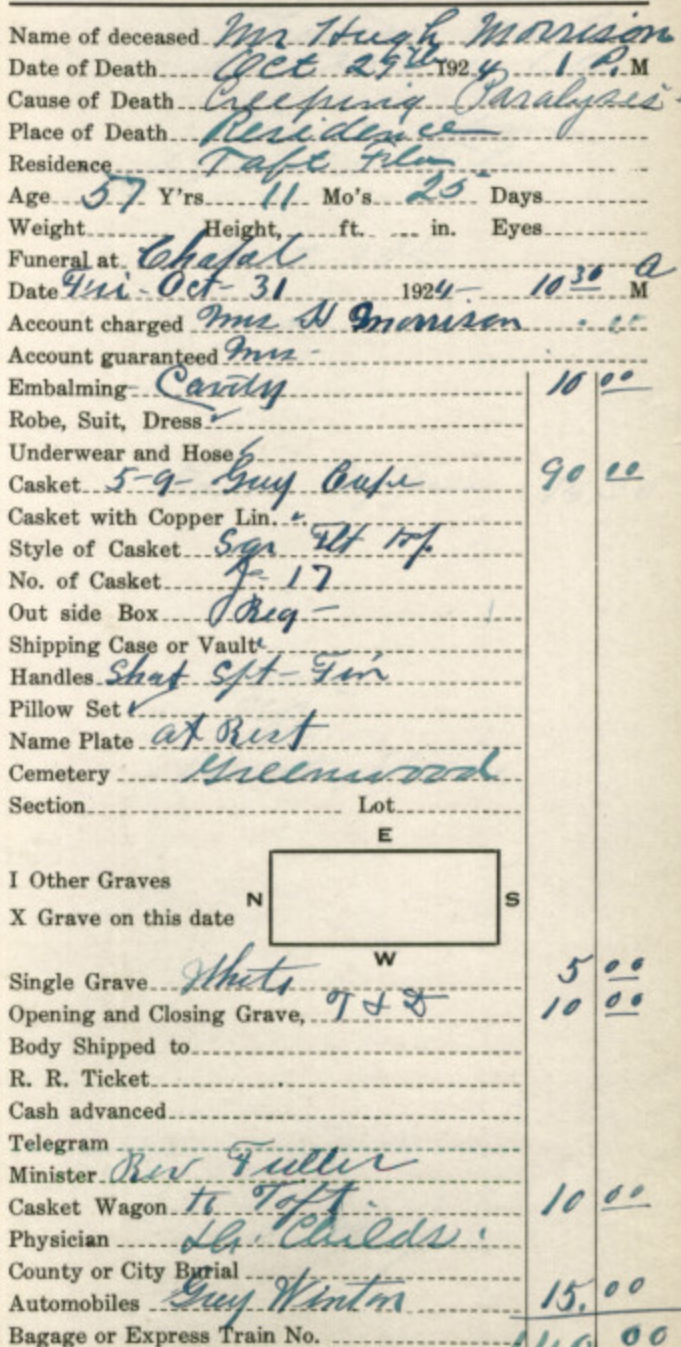 Name of deceased Mr Hugh Morrison
Date of Death Oct 29th 1924 1 P. M
Cause of Death Creeping Paralyses
Place of Death Residence
Residence Taft Fla
Age 57 Y'rs. 11 Mo's 25 Days
Weight Height, ft. in. Eyes
Funeral at Chapal
Date Fri - Oct - 31 1924 - 10 30 A M
Account charged Mrs H Morrison
Account guaranteed Mrs -
Embalming Cavity 10 00
Robe, Suit, Dress
Underwear and Hose
Casket 5-9- Grey 90 00
Casket with Copper Lin.
Style of Casket Sqr Flt Top
No. of Casket 17
Out side Box Reg -
Shipping Case or Vault
Handles
Pillow Set
Name Plate at Rest
Cemetery Greenwood
Section Lot
E
I Other Graves
N S
X Grave on this date
W
Single Grave White 5 00
Opening and Closing Grave, T & D 10 00
Body Shipped to
R. R. Ticket
Cash advanced
Telegram
Minister Rev Fuller
Casket Wagon to Taft. 10 00
Physician Dr. Childs.
County or City Burial
Automobiles Grey Winton 15. 00
Bagage or Express Train No. 140 00